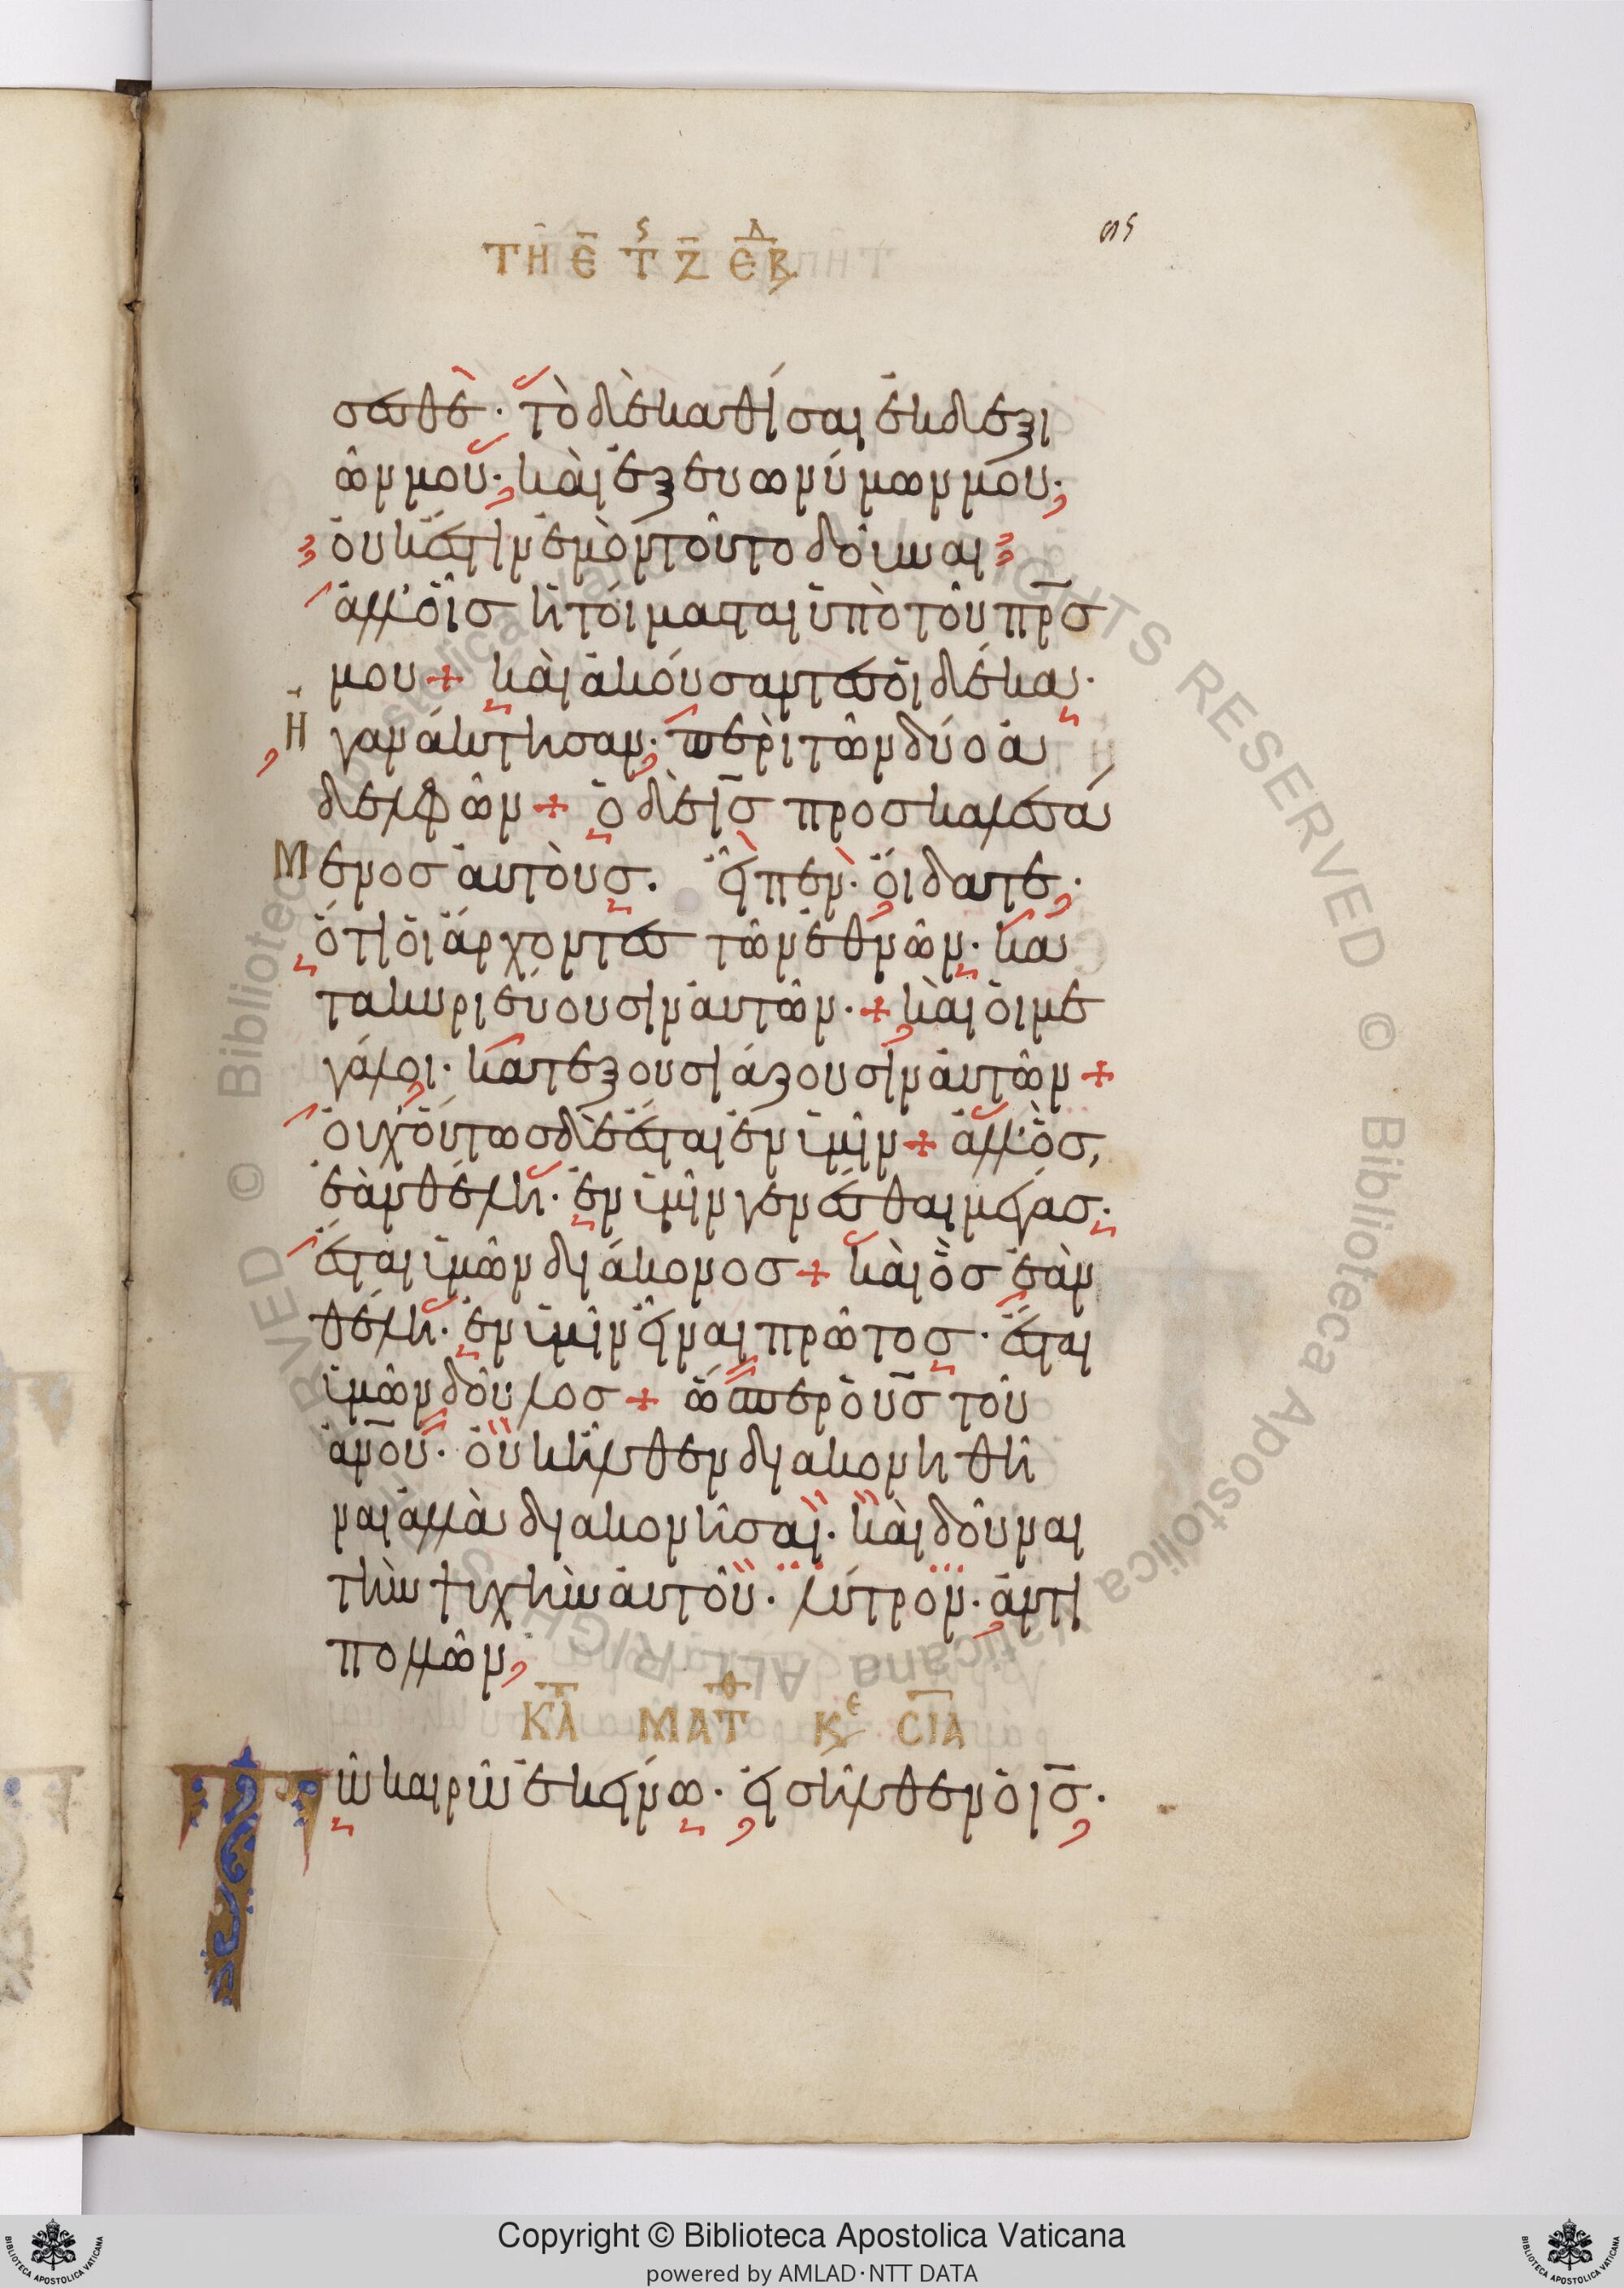 ΤΗ Ε Τς Ζ ΕΒΔ
σεσθε· τὸ δὲ καθίσαι ἐκ δεξι
ῶν μου· καὶ ἐξ ευωνύμων μου·
ὀυκ ἔστιν ἐμὸν τοῦτο δοῦναι
ἀλλ' ὁῖσ ἡτοίμασται ὑπὸ τοῦ πρσ
μου + καὶ ἀκούσαντεσ ὁι δέκα·
ἠγανάκτησαν· περὶ τῶν δύο ἀ
δελφῶν + ὁ δὲ ις προσκαλεσά
Μενοσ ἀυτοὺσ. ἐῖπεν· ὄιδατε·
ὅτι ὁι ἄρχοντεσ τῶν ἐθνῶν· κα
τακυριεύουσιν ἀυτῶν· + καὶ ὁι με
γάλοι· κατεξουσιάζουσιν ἀυτῶν +
ὀυχ' ὅυτωσ δὲ ἔσται ἐν ὑμῖν + ἀλλ' ὃσ,
ἐὰν θέλη· ἐν ὑμῖν γενέσθαι μέγασ·
ἔσται ὑμῶν διάκονοσ + καὶ ὃσ ἐὰν
θέλη· ἐν ὑμῖν εἶναι πρῶτοσ· ἔσται
ὑμῶν δοῦλοσ + ὥσπερ ὁ υσ τοῦ
ἀνου· ὀυκ ἦλθεν διακονηθῆ
ναι ἀλλὰ διακονῆσαι· καὶ δοῦναι
τὴν ψυχὴν ἀυτοῦ· λύτρον· ἀντὶ
πολλῶν,
ΚΑ ΜΑΤΘ Κε CΙΑ
Τῶ καιρῶ ἐκείνω· εἰσῆλθεν ὁ ισ·